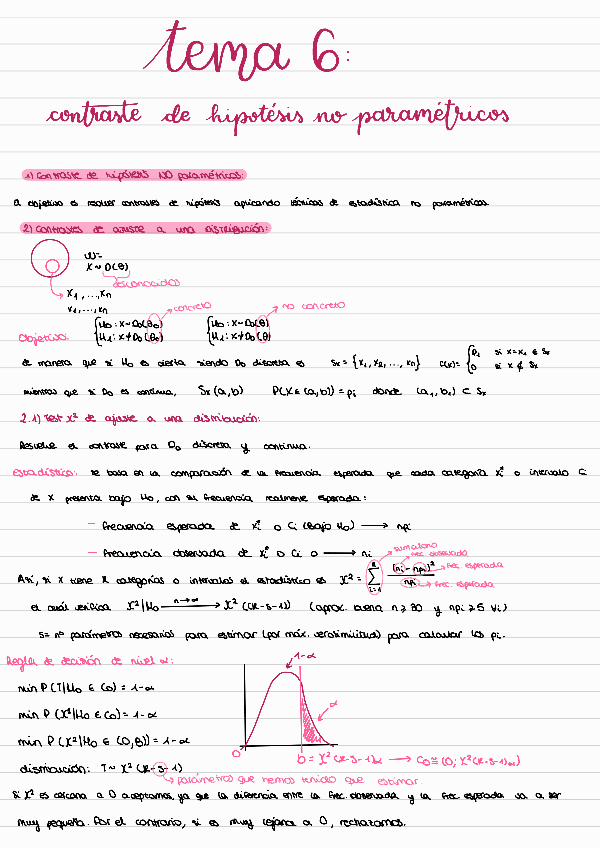 tema 6:
contraste de hipotésis no paramétricos
1) Contraste de hipótesis NO paramétricos:
El objetivo es resolver contrastes de hipótesis aplicando técnicas de estadística no paramétricas.
2) Contrastes de ajuste a una distribución:
X ~ D(θ)
desconocidos
X₁, ..., Xₙ
x₁, ..., xₙ
concreto
no concreto
Objetivo: { H₀ : X ~ D₀(θ₀) { H₀ : X ~ D₀(θ)
H₁ : X ≁ D₀(θ₀) H₁ : X ≁ D₀(θ)
de manera que si H₀ es cierta siendo D₀ discreta es Sx = {x₁, x₂, ..., xₙ} P(x) = { Pᵢ si x = xᵢ ∈ Sx
0 si x ∉ Sx
mientras que si D₀ es continua, Sx (a, b) P(X ∈ (a, b)) = pᵢ donde (a₁, b₁) ⊂ Sx
2.1) Test X² de ajuste a una distribución:
Resuelve el contraste para D₀ discreta y continua.
Estadístico: se basa en la comparación de la frecuencia esperada que cada categoría xᵢ* o intervalo Cᵢ
de X presenta bajo H₀, con su frecuencia realmente esperada:
— Frecuencia esperada de xᵢ* o Cᵢ (Bajo H₀) ⟶ npᵢ
— Frecuencia observada de xᵢ* o Cᵢ o ⟶ nᵢ
sumatorio
frec. observada
Así, si X tiene K categorías o intervalos el estadístico es X² = Σ (i=1, K) (nᵢ - npᵢ)² / npᵢ
frec. esperada
frec. esperada
el cuál verifica X²|H₀ —n→∞→ X² (K-s-1) (aprox. buena n ≥ 30 y npᵢ ≥ 5 ∀i)
s = nº parámetros necesarios para estimar (por máx. verosimilitud) para calcular los pᵢ.
Regla de decisión de nivel α:
1-α
min P (T|H₀ ∈ C₀) = 1-α
α
min P (X²|H₀ ∈ C₀) = 1-α
min P (X²|H₀ ∈ (0, B)) = 1-α
0
b = X² (K-s-1)α ⟶ C₀ ≅ (0; X² (K-s-1)α)
distribución: T ~ X² (K-s-1)
parámetros que hemos tenido que estimar.
Si X² es cercana a 0 aceptamos, ya que la diferencia entre la frec. observada y la frec esperada va a ser
muy pequeña. Por el contrario, si es muy lejana a 0, rechazamos.